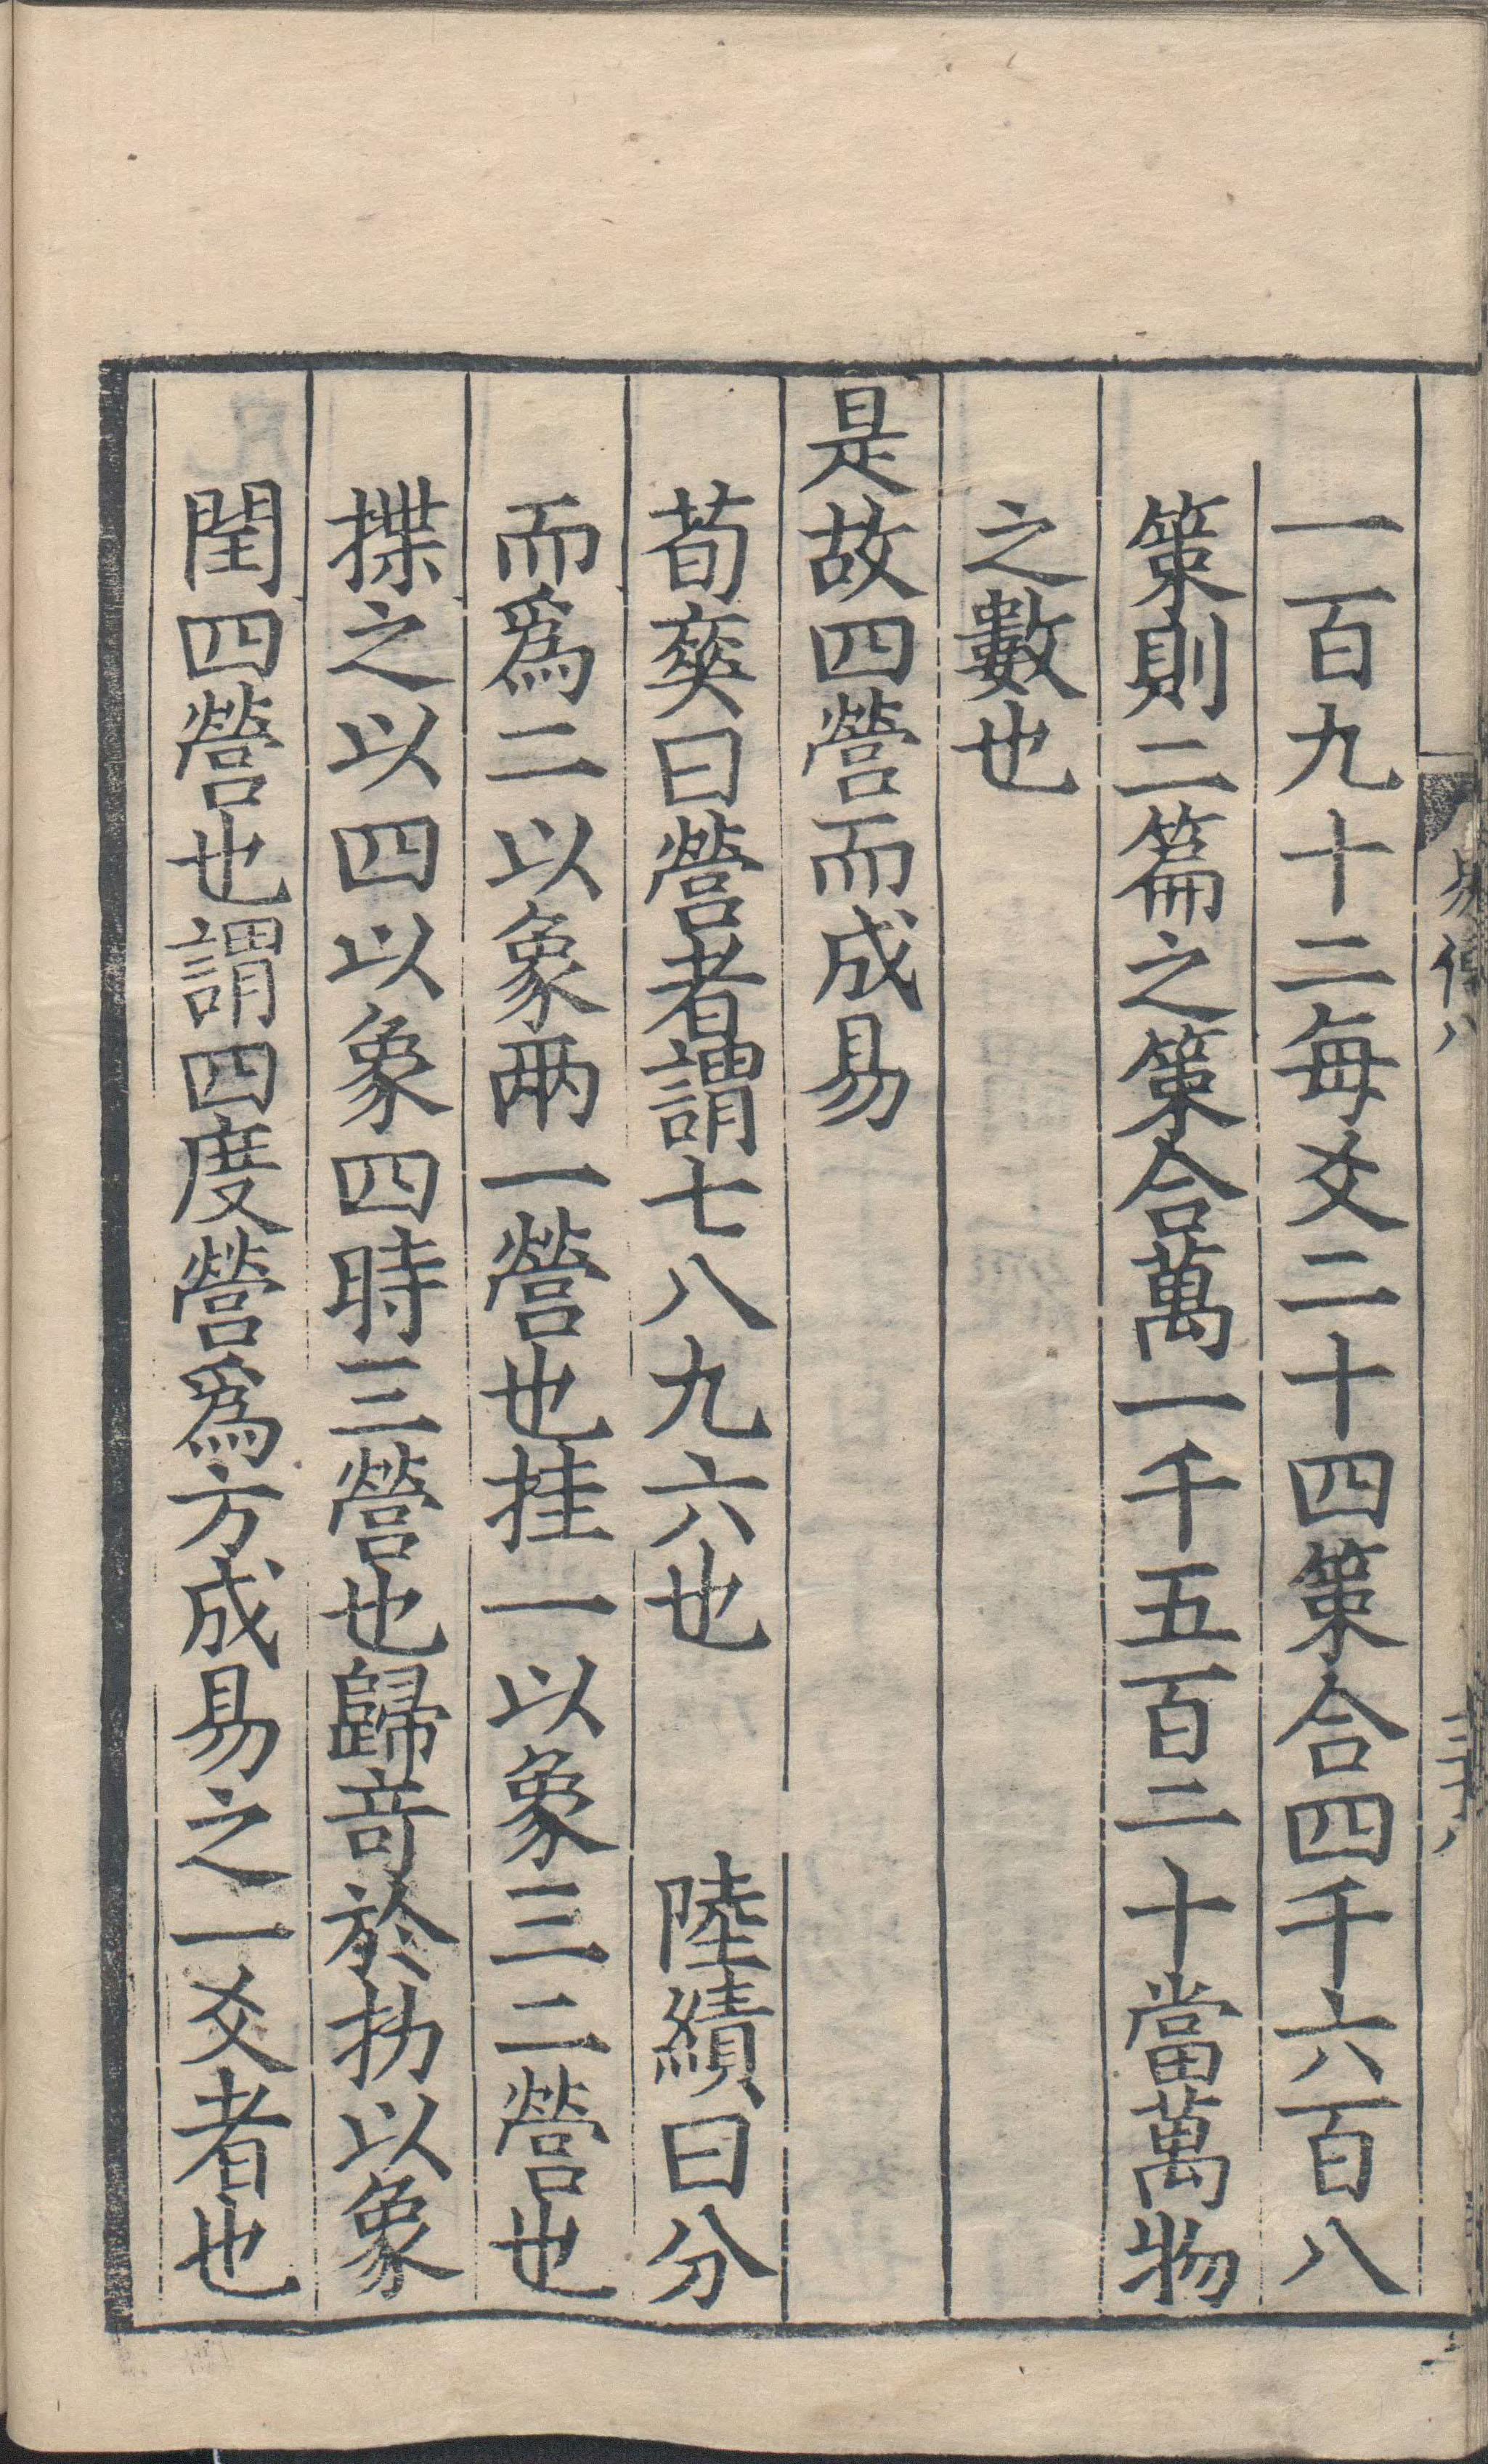 一百九十二每爻二十四策合四千六百八
策則二篇之策合萬一千五百二十當萬物
之數也
是故四營而成易
荀爽曰營者謂七八九六也　陸績曰分
而爲二以象兩一營也挂一以象三二營也
揲之以四以象四時三營也歸竒於扐以象
閏四營也謂四度營爲方成易之一爻者也